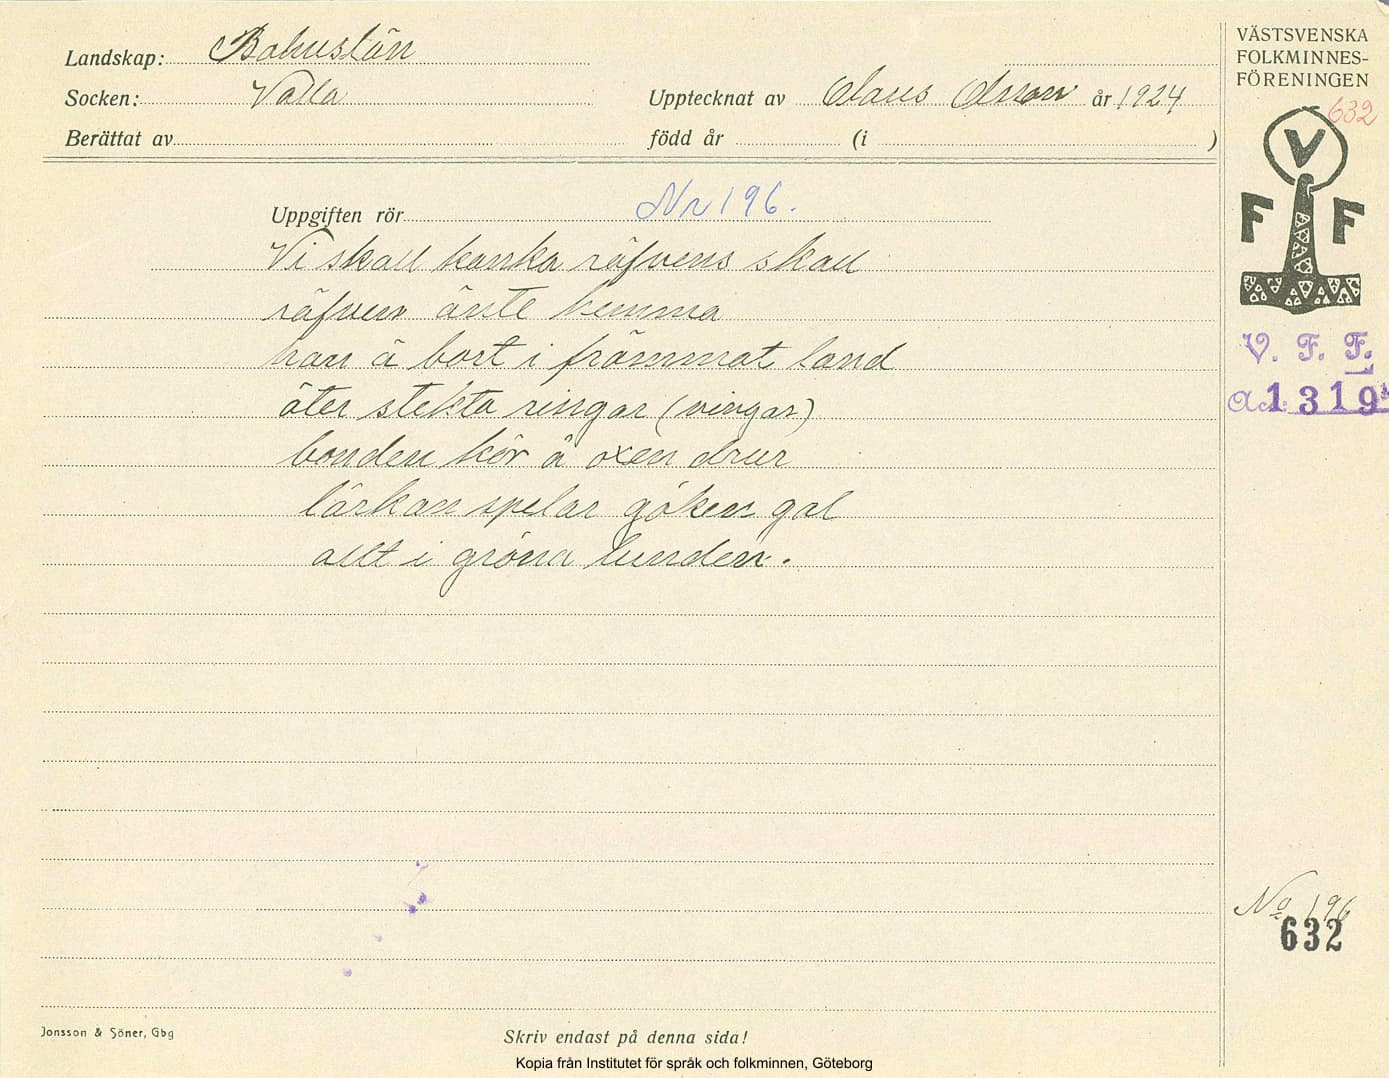 Landskap: Bohuslän
Socken: Valla
Upptecknat av Claus Olsson år 1924
Berättat av
född år (i )
VÄSTSVENSKA
FOLKMINNES-
FÖRENINGEN
632
V
F F
V. F. F.
Acc. 1319
Uppgiften rör Nr 196.
Vi skall banka räfvens skall
räfven äste hemma
han ä bort i främmat land
äter stekta ringar (vingar)
bonden kör å oxen drar
lärkan spelar göken gal
allt i gröna lunden.
No 196
632
Jonsson & Söner, Gbg
Skriv endast på denna sida!
Kopia från Institutet för språk och folkminnen, Göteborg